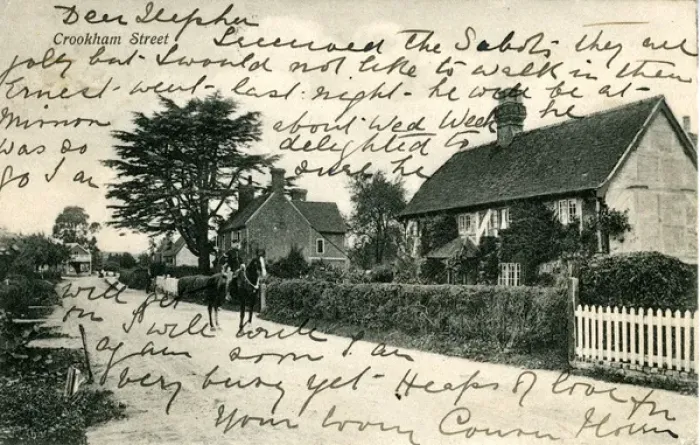 Dear Stephen
Crookham Street
I received the Sabots they are
jolly but I would not like to walk in them
Ernest went last night he will be at
about Wed Week he
was so delighted to
go I am sure he
will get
on I will write
again soon I am
very busy yet Heaps of love fr
Your loving Cousin